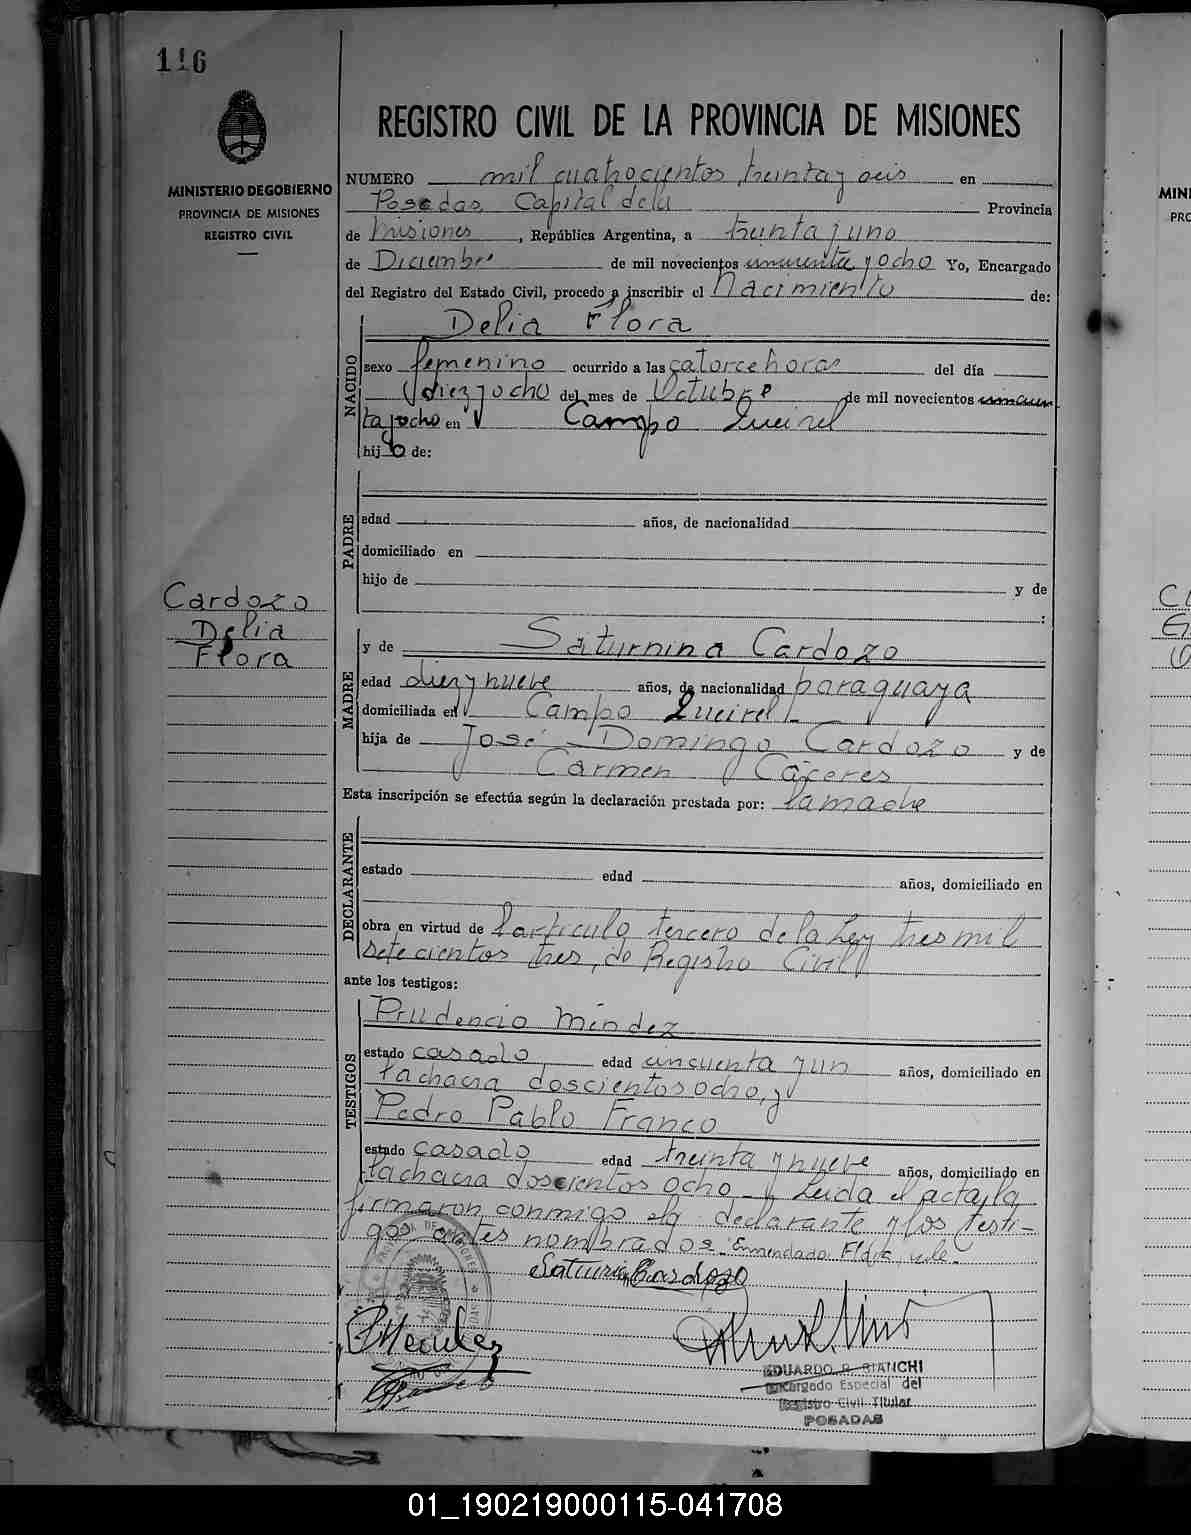 116
MINISTERIO DE GOBIERNO
PROVINCIA DE MISIONES
REGISTRO CIVIL
REGISTRO CIVIL DE LA PROVINCIA DE MISIONES
NUMERO mil cuatrocientos treinta y seis en
Posadas Capital de la Provincia
de Misiones, República Argentina, a treinta y uno
de Diciembre de mil novecientos cincuenta y ocho Yo, Encargado
del Registro del Estado Civil, procedo a inscribir el Nacimiento de:
NACIDO
Delia Flora
sexo femenino ocurrido a las catorce horas del día
diez y ocho del mes de Octubre de mil novecientos cincuen
ta y ocho en Campo Queirel
hija de:
PADRE
edad años, de nacionalidad
domiciliado en
hijo de y de
:
Cardozo
Delia
Flora
MADRE
y de Saturnina Cardozo
edad diez y nueve años, de nacionalidad paraguaya
domiciliada en Campo Queirel
hija de José Domingo Cardozo y de
Carmen Cáceres
Esta inscripción se efectúa según la declaración prestada por: la madre
DECLARANTE
estado edad años, domiciliado en
obra en virtud de l'artículo tercero de la Ley tres mil
setecientos tres, de Registro Civil
ante los testigos:
TESTIGOS
Prudencio Méndez
estado casado edad cincuenta y un años, domiciliado en
la chacra doscientos ocho, y
Pedro Pablo Franco
estado casado edad treinta y nueve años, domiciliado en
la chacra doscientos ocho Leída el acta, la
firmaron conmigo, la declarante y los testi-
gos antes nombrados. Enmendado: Flora, vale.
Saturnina Cardozo
PMendez
EDUARDO R. BIANCHI
Encargado Especial del
Registro Civil Titular
POSADAS
MINI
PRO
01_190219000115-041708